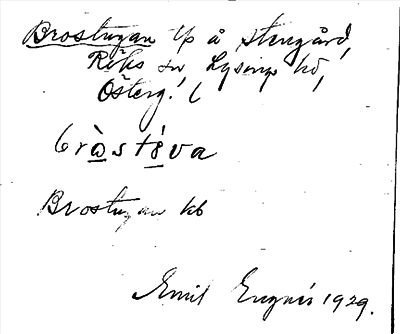 Brostugan tp å Stengård,
Röks sn, Lysings hd,
Österg. l
bròstɵva
Brostugan kb
Emil Engnis 1929.